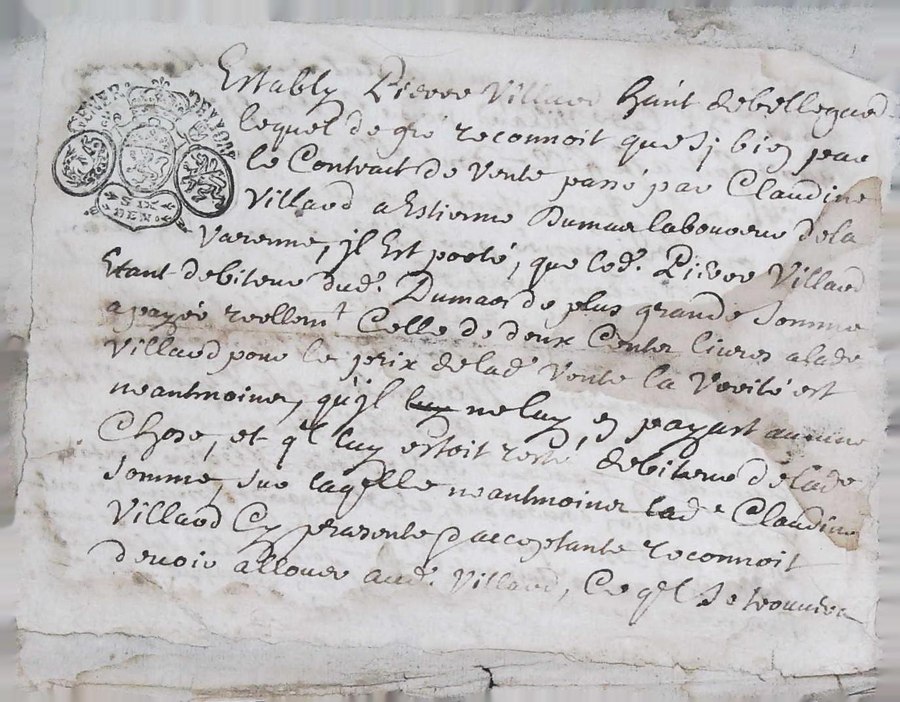 GENER DE LYON
SIX
DEN
Estably Pierre Villard hant de bellegard
lequel de gré reconnoit que sj bien par
le Contract de Vente passé par Claudine
Villard a Estienne Dumas laboureur de la
Varenne, jl Est porté, que led. Pierre Villard
Etant debiteur dud. Dumas de plus grande somme
a payée reellemt Celle de deux Centz livres a lade
Villard pour le prix de lade Vente la Verité est
neantmoins, qu'jl ne luy en payast aucune
Chose, et ql luy estoit resté debiteur de lade
somme, sur laqlle neantmoins lade Claudine
Villard Cy presente & acceptante reconnoit
devoir allouer aud. Villard, Ce ql se trouvera